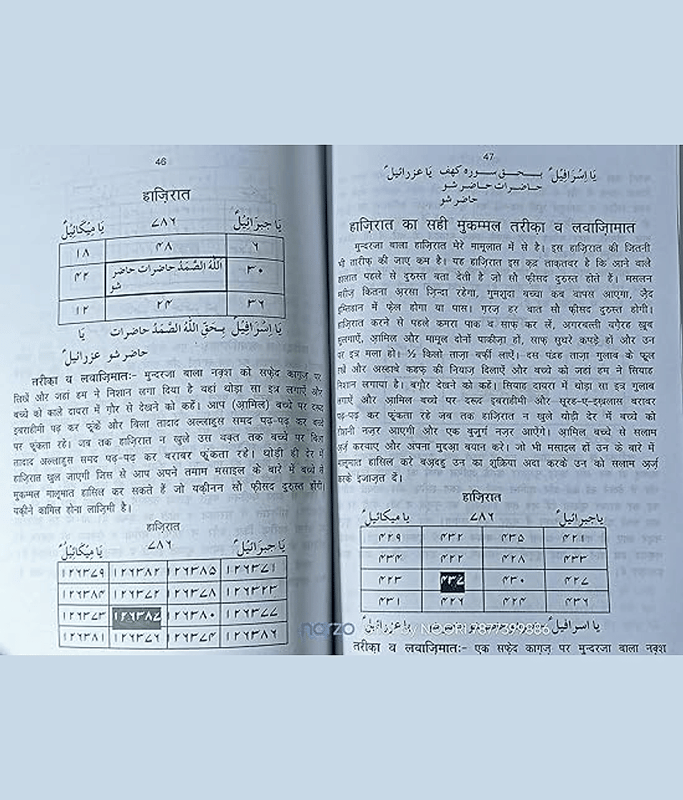 46
हाज़िरात
یا جبرائیلؑ ۷۸۶ یا میکائیلؑ
۱۸ ۴۸ ۶
۴۲ اللہُ الصَّمَدُ حاضرات حاضر شو ۳۰
۱۲ ۲۴ ۳۶
یا اسرافیلؑ بحق اللہُ الصَّمَدُ حاضرات یا
حاضر شو عزرائیلؑ
तरीक़ा व लवाज़िमातः- मुन्दरजा बाला नक़्श को सफ़ेद काग़ज़ पर
लिखें और जहां हम ने निशान लगा दिया है वहां थोड़ा सा इत्र लगाएँ और
बच्चे को काले दायरा में ग़ौर से देखने को कहें। आप (आमिल) बच्चे पर दरूद
इबराहीमी पढ़ कर फूंकें और बिला तादाद अल्लाहुस समद पढ़-पढ़ कर बच्चे
पर फूंकता रहे। जब तक हाज़िरात न खुले उस वक़्त तक बच्चे पर बिला
तादाद अल्लाहुस समद पढ़-पढ़ कर बराबर फूंकता रहे। थोड़ी ही देर में
हाज़िरात खुल जाएगी जिस से आप अपने तमाम मसाइल के बारे में बच्चे से
मुकम्मल मालूमात हासिल कर सकते हैं जो यक़ीनन सौ फ़ीसद दुरुस्त होंगी।
यक़ीने कामिल होना लाज़िमी है।
हाज़िरात
یا جبرائیلؑ ۷۸۶ یا میکائیلؑ
۱۲۶۳۷۹ ۱۲۶۳۸۲ ۱۲۶۳۸۵ ۱۲۶۳۷۱
۱۲۶۳۸۴ ۱۲۶۳۷۲
۱۲۶۳۷۳ ۱۲۶۳۸۷ ۱۲۶۳۸۰ ۱۲۶۳۷۷
۱۲۶۳۸۱ ۱۲۶۳۷۶ ۱۲۶۳۷۴ ۱۲۶۳۸۶
47
یا اسرافیلؑ بحق سورہ کہف یا عزرائیلؑ
حاضرات حاضر شو
حاضر شو
हाज़िरात का सही मुकम्मल तरीक़ा व लवाज़िमात
मुन्दरजा बाला हाज़िरात मेरे मामूलात में से है। इस हाज़िरात की जितनी
भी तारीफ़ की जाए कम है। यह हाज़िरात इस क़द्र ताक़तवर है कि आने वाले
हालात पहले से दुरुस्त बता देती है जो सौ फ़ीसद दुरुस्त होते हैं। मसलन
मरीज़ कितना अरसा ज़िन्दा रहेगा, गुमशुदा बच्चा कब वापस आएगा, ज़ैद
इम्तिहान में फ़ेल होगा या पास। ग़रज़ हर बात सौ फ़ीसद दुरुस्त होगी।
हाज़िरात करने से पहले कमरा पाक व साफ़ कर लें, अगरबत्ती वग़ैरह ख़ूब
सुलगाएँ, आमिल और मामूल दोनों पाकीज़ा हों, साफ़ सुथरे कपड़े हों और उन
पर इत्र मला हो। ½ किलो ताज़ा बर्फ़ी लाएँ। दस पंद्रह ताज़ा गुलाब के फूल
रखें और अस्हाबे कहफ़ की नियाज़ दिलाएँ और बच्चे को जहां हम ने सियाह
निशान लगाया है। बग़ौर देखने को कहें। सियाह दायरा में थोड़ा सा इत्र गुलाब
लगाएँ और आमिल बच्चे पर दरूद इबराहीमी और सूरह-ए-इख़लास बराबर
पढ़-पढ़ कर फूंकता रहे जब तक हाज़िरात न खुले थोड़ी देर में बच्चे को
रोशनी नज़र आएगी और एक बुज़ुर्ग नज़र आएंगे। आमिल बच्चे से सलाम
अर्ज़ करवाए और अपना मुद्दआ बयान करे। जो भी मसाइल हों उन के बारे में
मालूमात हासिल करें बअदहु उन का शुक्रिया अदा करके उन को सलाम अर्ज़
करके इजाज़त दें।
हाज़िरात
یا جبرائیلؑ ۷۸۶ یا میکائیلؑ
۴۲۹ ۴۳۲ ۴۳۵ ۴۲۱
۴۳۴ ۴۲۲ ۴۲۸ ۴۳۳
۴۲۳ ۴۳۷ ۴۳۰ ۴۲۷
۴۳۱ ۴۲۶ ۴۲۴ ۴۳۶
یا اسرافیلؑ حاضر شو یا عزرائیلؑ
narzo NOORI 7877399886
तरीक़ा व लवाज़िमातः- एक सफ़ेद काग़ज़ पर मुन्दरजा बाला नक़्श